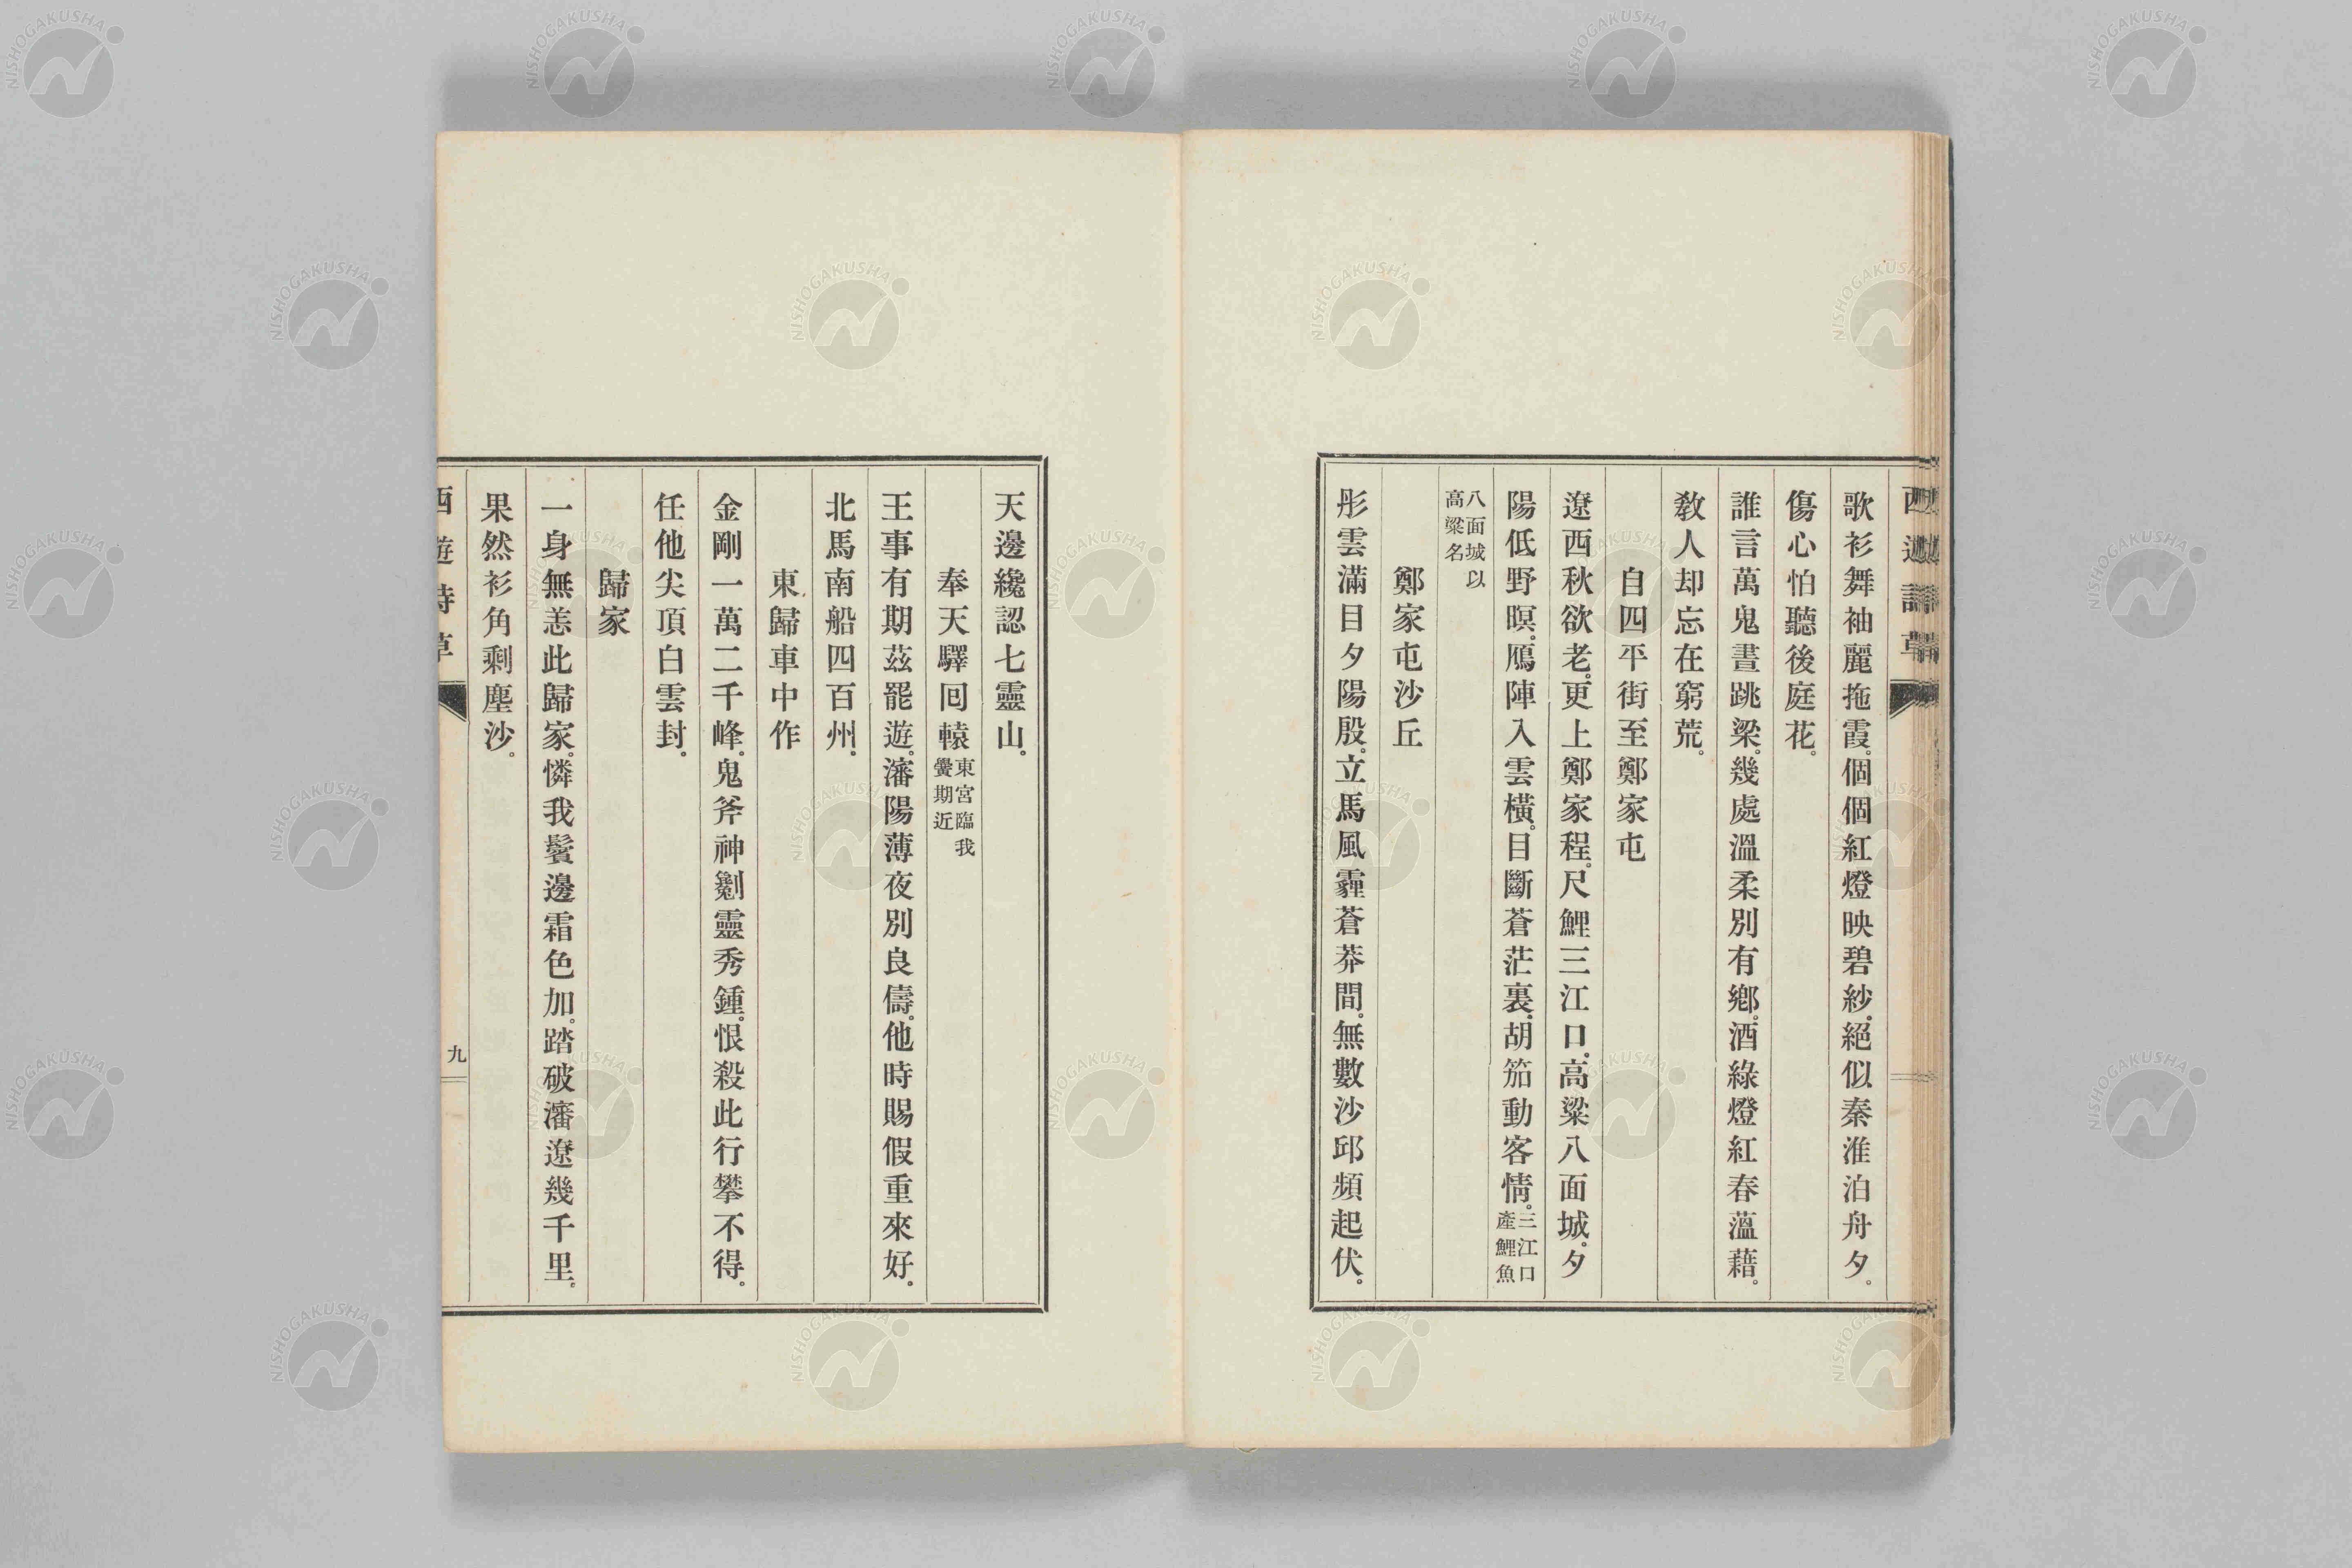 西遊詩草
歌衫舞袖麗拖霞。個個紅燈映碧紗。絕似秦淮泊舟夕。
傷心怕聽後庭花。
誰言萬鬼晝跳梁。幾處溫柔別有鄉。酒綠燈紅春薀藉。
教人却忘在窮荒。
自四平街至鄭家屯
遼西秋欲老。更上鄭家程。尺鯉三江口。高粱八面城。夕
陽低野暝。鴈陣入雲橫。目斷蒼茫裏。胡笳動客情。三江口產鯉魚
八面城以高粱名
鄭家屯沙丘
彤雲滿目夕陽殷。立馬風霾蒼莽間。無數沙邱頻起伏。
天邊纔認七靈山。
奉天驛回轅東宮臨我黌期近
王事有期茲罷遊。瀋陽薄夜別良儔。他時賜假重來好。
北馬南船四百州。
東歸車中作
金剛一萬二千峰。鬼斧神劖靈秀鍾。恨殺此行攀不得。
任他尖頂白雲封。
歸家
一身無恙此歸家。憐我鬢邊霜色加。踏破瀋遼幾千里。
果然衫角剩塵沙。
西遊詩草
九
NISHOGAKUSHA